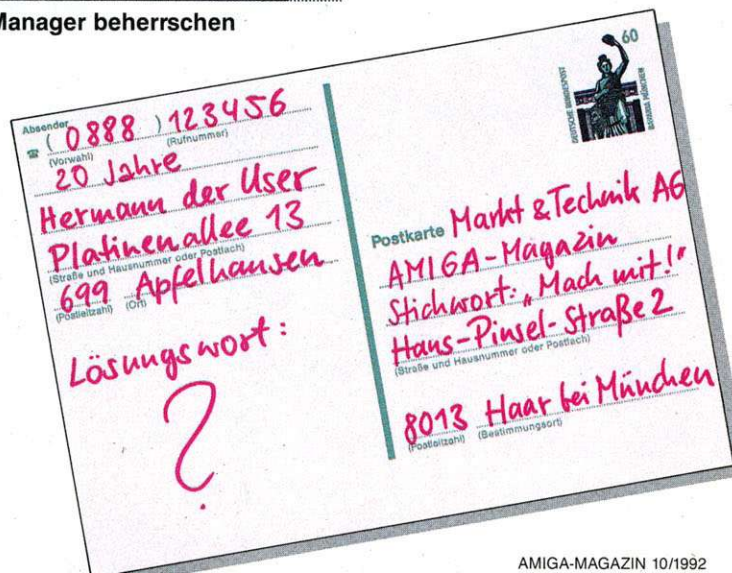 Manager beherrschen
Absender
☎ ( 0888 ) 123456
(Vorwahl) (Rufnummer)
20 Jahre
Hermann der User
Platinenallee 13
(Straße und Hausnummer oder Postfach)
699 Apfelhausen
(Postleitzahl) (Ort)
Lösungswort:
?
60
DEUTSCHE BUNDESPOST
BAVARIA MÜNCHEN
Postkarte Markt & Technik AG
AMIGA-Magazin
Stichwort: „Mach mit!"
Hans-Pinsel-Straße 2
(Straße und Hausnummer oder Postfach)
8013 Haar bei München
(Postleitzahl) (Bestimmungsort)
AMIGA-MAGAZIN 10/1992